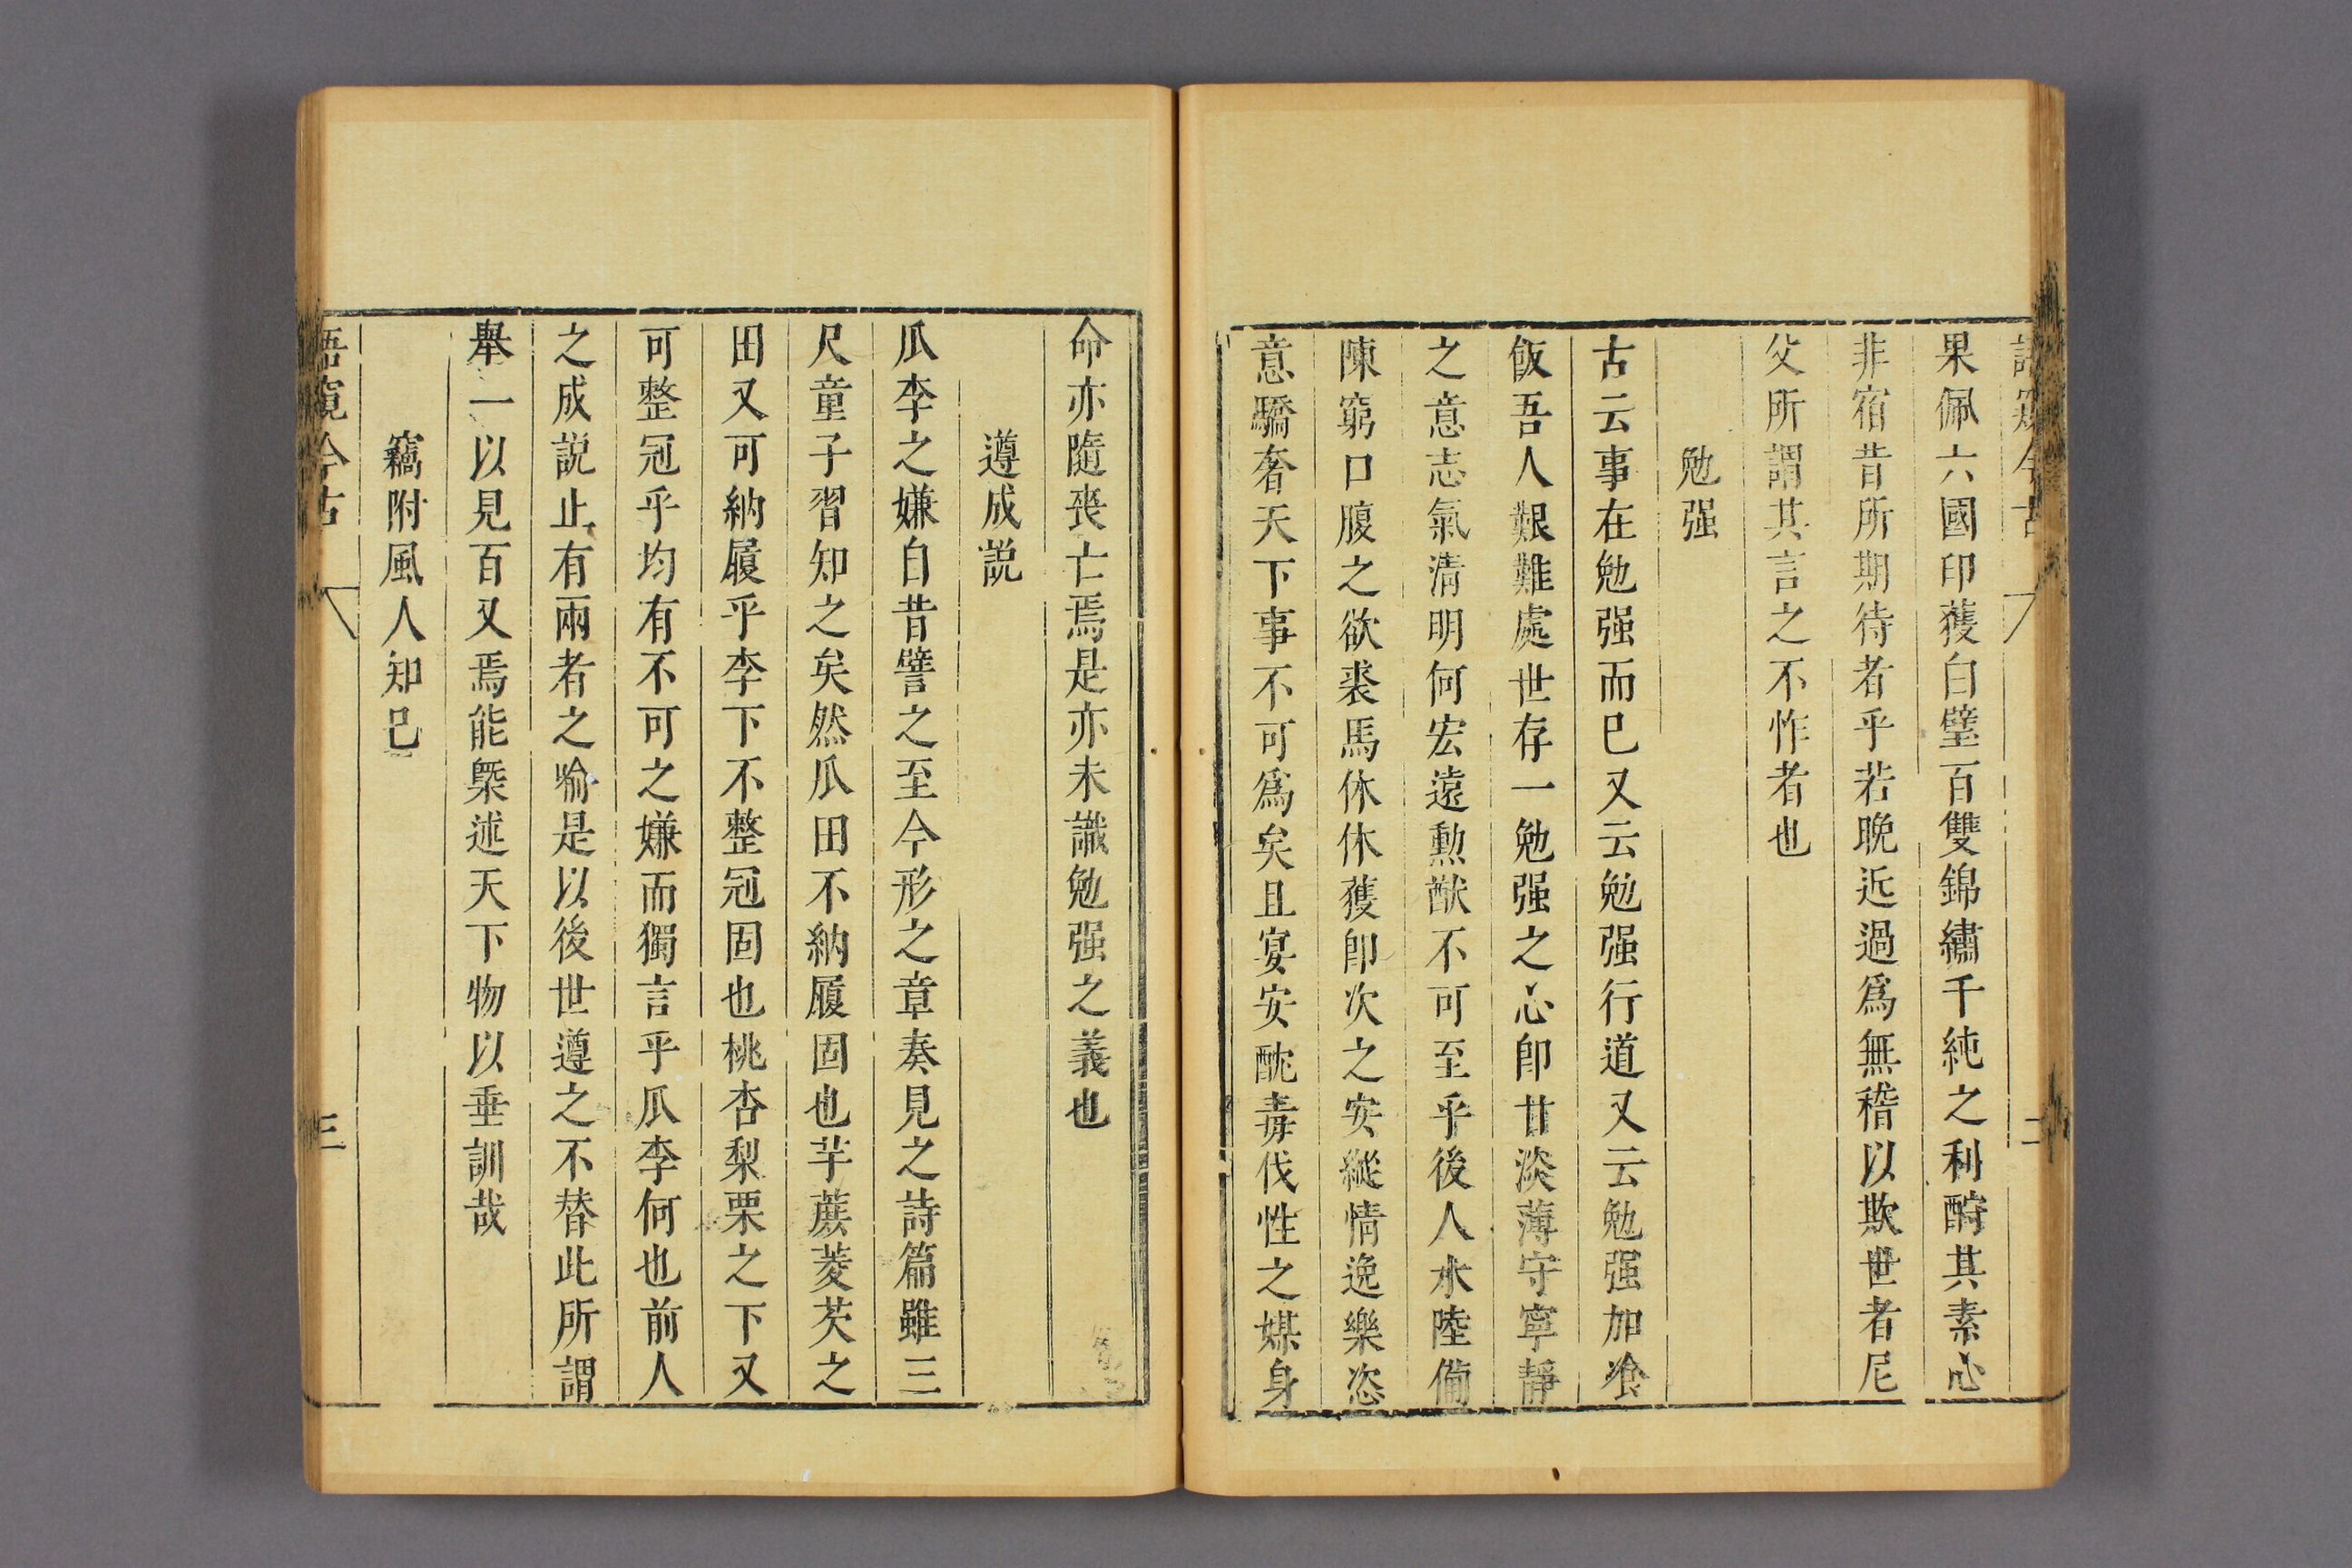 語窺今古
二
果佩六國印獲白璧百雙錦繡千純之利酬其素心
非宿昔所期待者乎若晚近過爲無稽以欺世者尼
父所謂其言之不怍者也
勉强
古云事在勉强而巳又云勉强行道又云勉强加飡
飯吾人艱難處世存一勉强之心卽甘淡薄守寧靜
之意志氣清明何宏遠勲猷不可至乎後人水陸僃
陳窮口腹之欲裘馬休休獲卽次之安縱情逸樂恣
意驕奢天下事不可爲矣且宴安酖毒伐性之媒身
命亦隨喪亡焉是亦未識勉强之義也
遵成説
瓜李之嫌自昔譬之至今形之章奏見之詩篇雖三
尺童子習知之矣然瓜田不納履固也芋蔗菱芡之
田又可納履乎李下不整冠固也桃杏梨栗之下又
可整冠乎均有不可之嫌而獨言乎瓜李何也前人
之成説止有兩者之喻是以後世遵之不替此所謂
舉一以見百又焉能槩述天下物以垂訓哉
竊附風人知巳
語窺今古
三